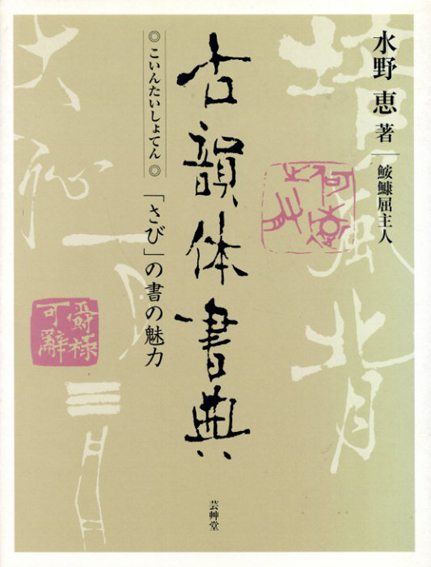 水野 恵 著
鮟鱇屈主人
古韻体書典
◎こいんたいしょてん◎
「さび」の書の魅力
芸艸堂
爵祿
可辭